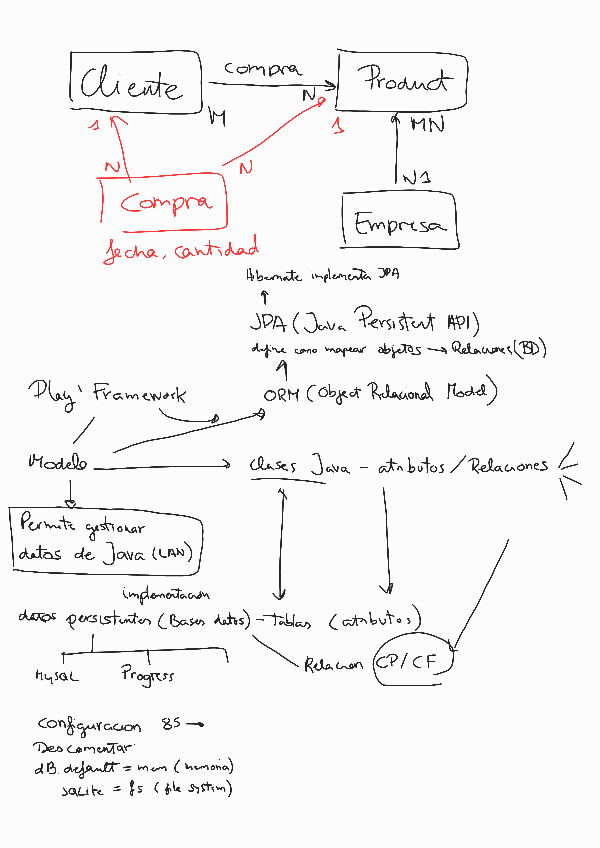 Cliente
compra
Product
M
N
1
1
MN
N
N
N1
Compra
Empresa
fecha, cantidad
Hibernate implementa JPA
JPA (Java Persistent API)
define como mapear objetos → Relaciones (BD)
Play! Framework
ORM (Object Relacional Model)
Modelo
clases Java - atributos / Relaciones
Permite gestionar
datos de Java (LAN)
implementacion
datos persistentes (Bases datos) - Tablas (atributos)
Relacion CP/CF
MySQL
Progress
Configuracion 85 →
Descomentar
dB.default = mem (memoria)
SQLite = fs (file system)